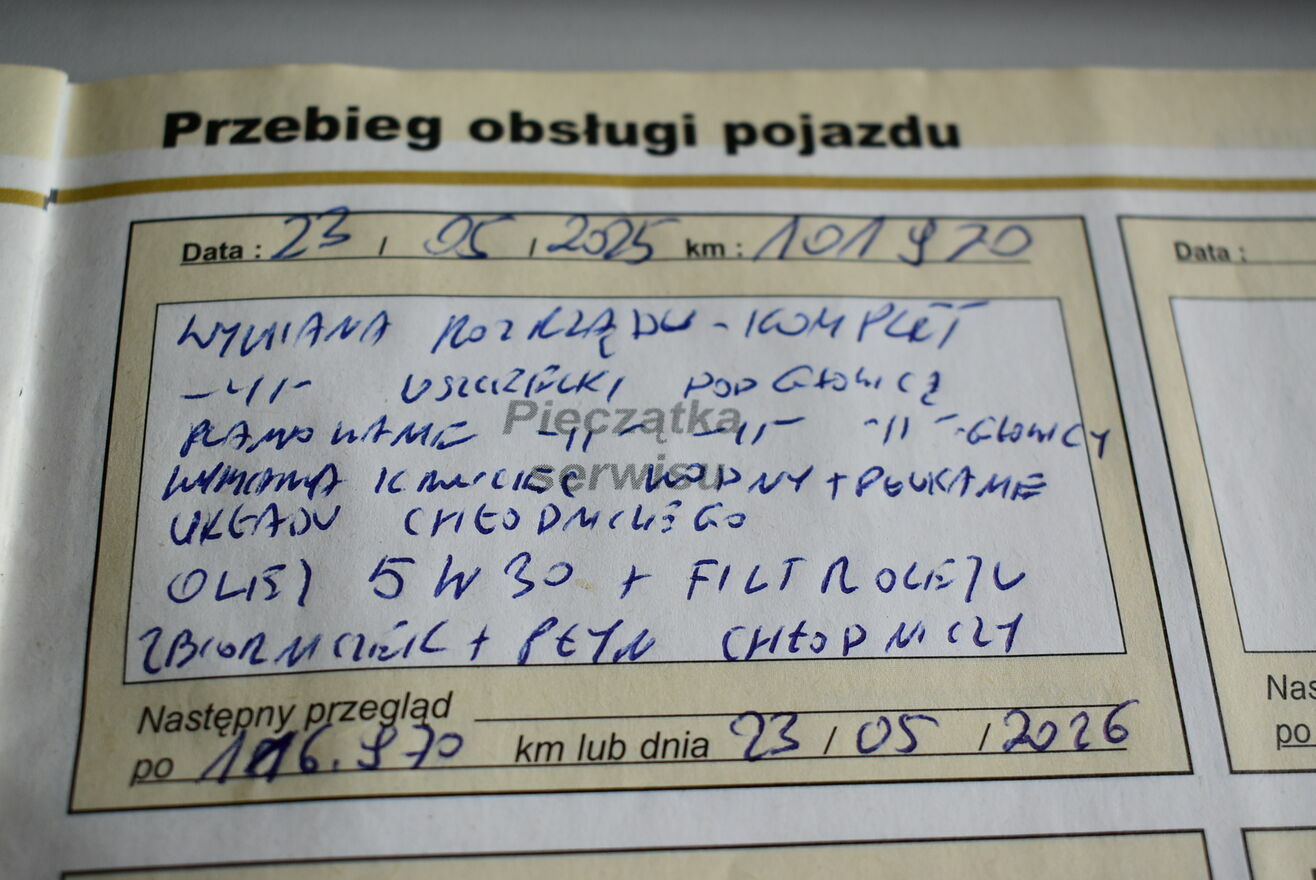 Przebieg obsługi pojazdu
Data : 23 / 05 / 2025 km : 101 970
Data :
WYMIANA ROZRZĄDU - KOMPLET
-11- USZCZELKI POD GŁOWICĄ
PLANOWANIE -11- -11- -11- GŁOWICY
Pieczątka
serwisu
WYMIANA KRUCIEC WODNY + PŁUKANIE
UKŁADU CHŁODNICZEGO
OLEJ 5W30 + FILTR OLEJU
ZBIORNICZEK + PŁYN CHŁODNICZY
Następny przegląd
po 116.970 km lub dnia 23 / 05 / 2026
Nas
po